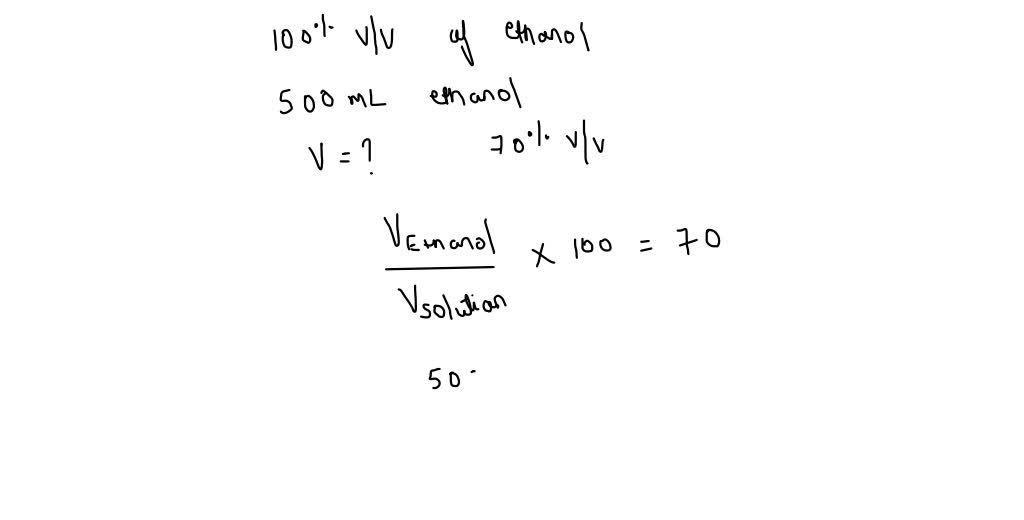 100% v/v of ethanol
500 mL ethanol
V = ? 70% v/v
V Ethanol / V solution × 100 = 70
50